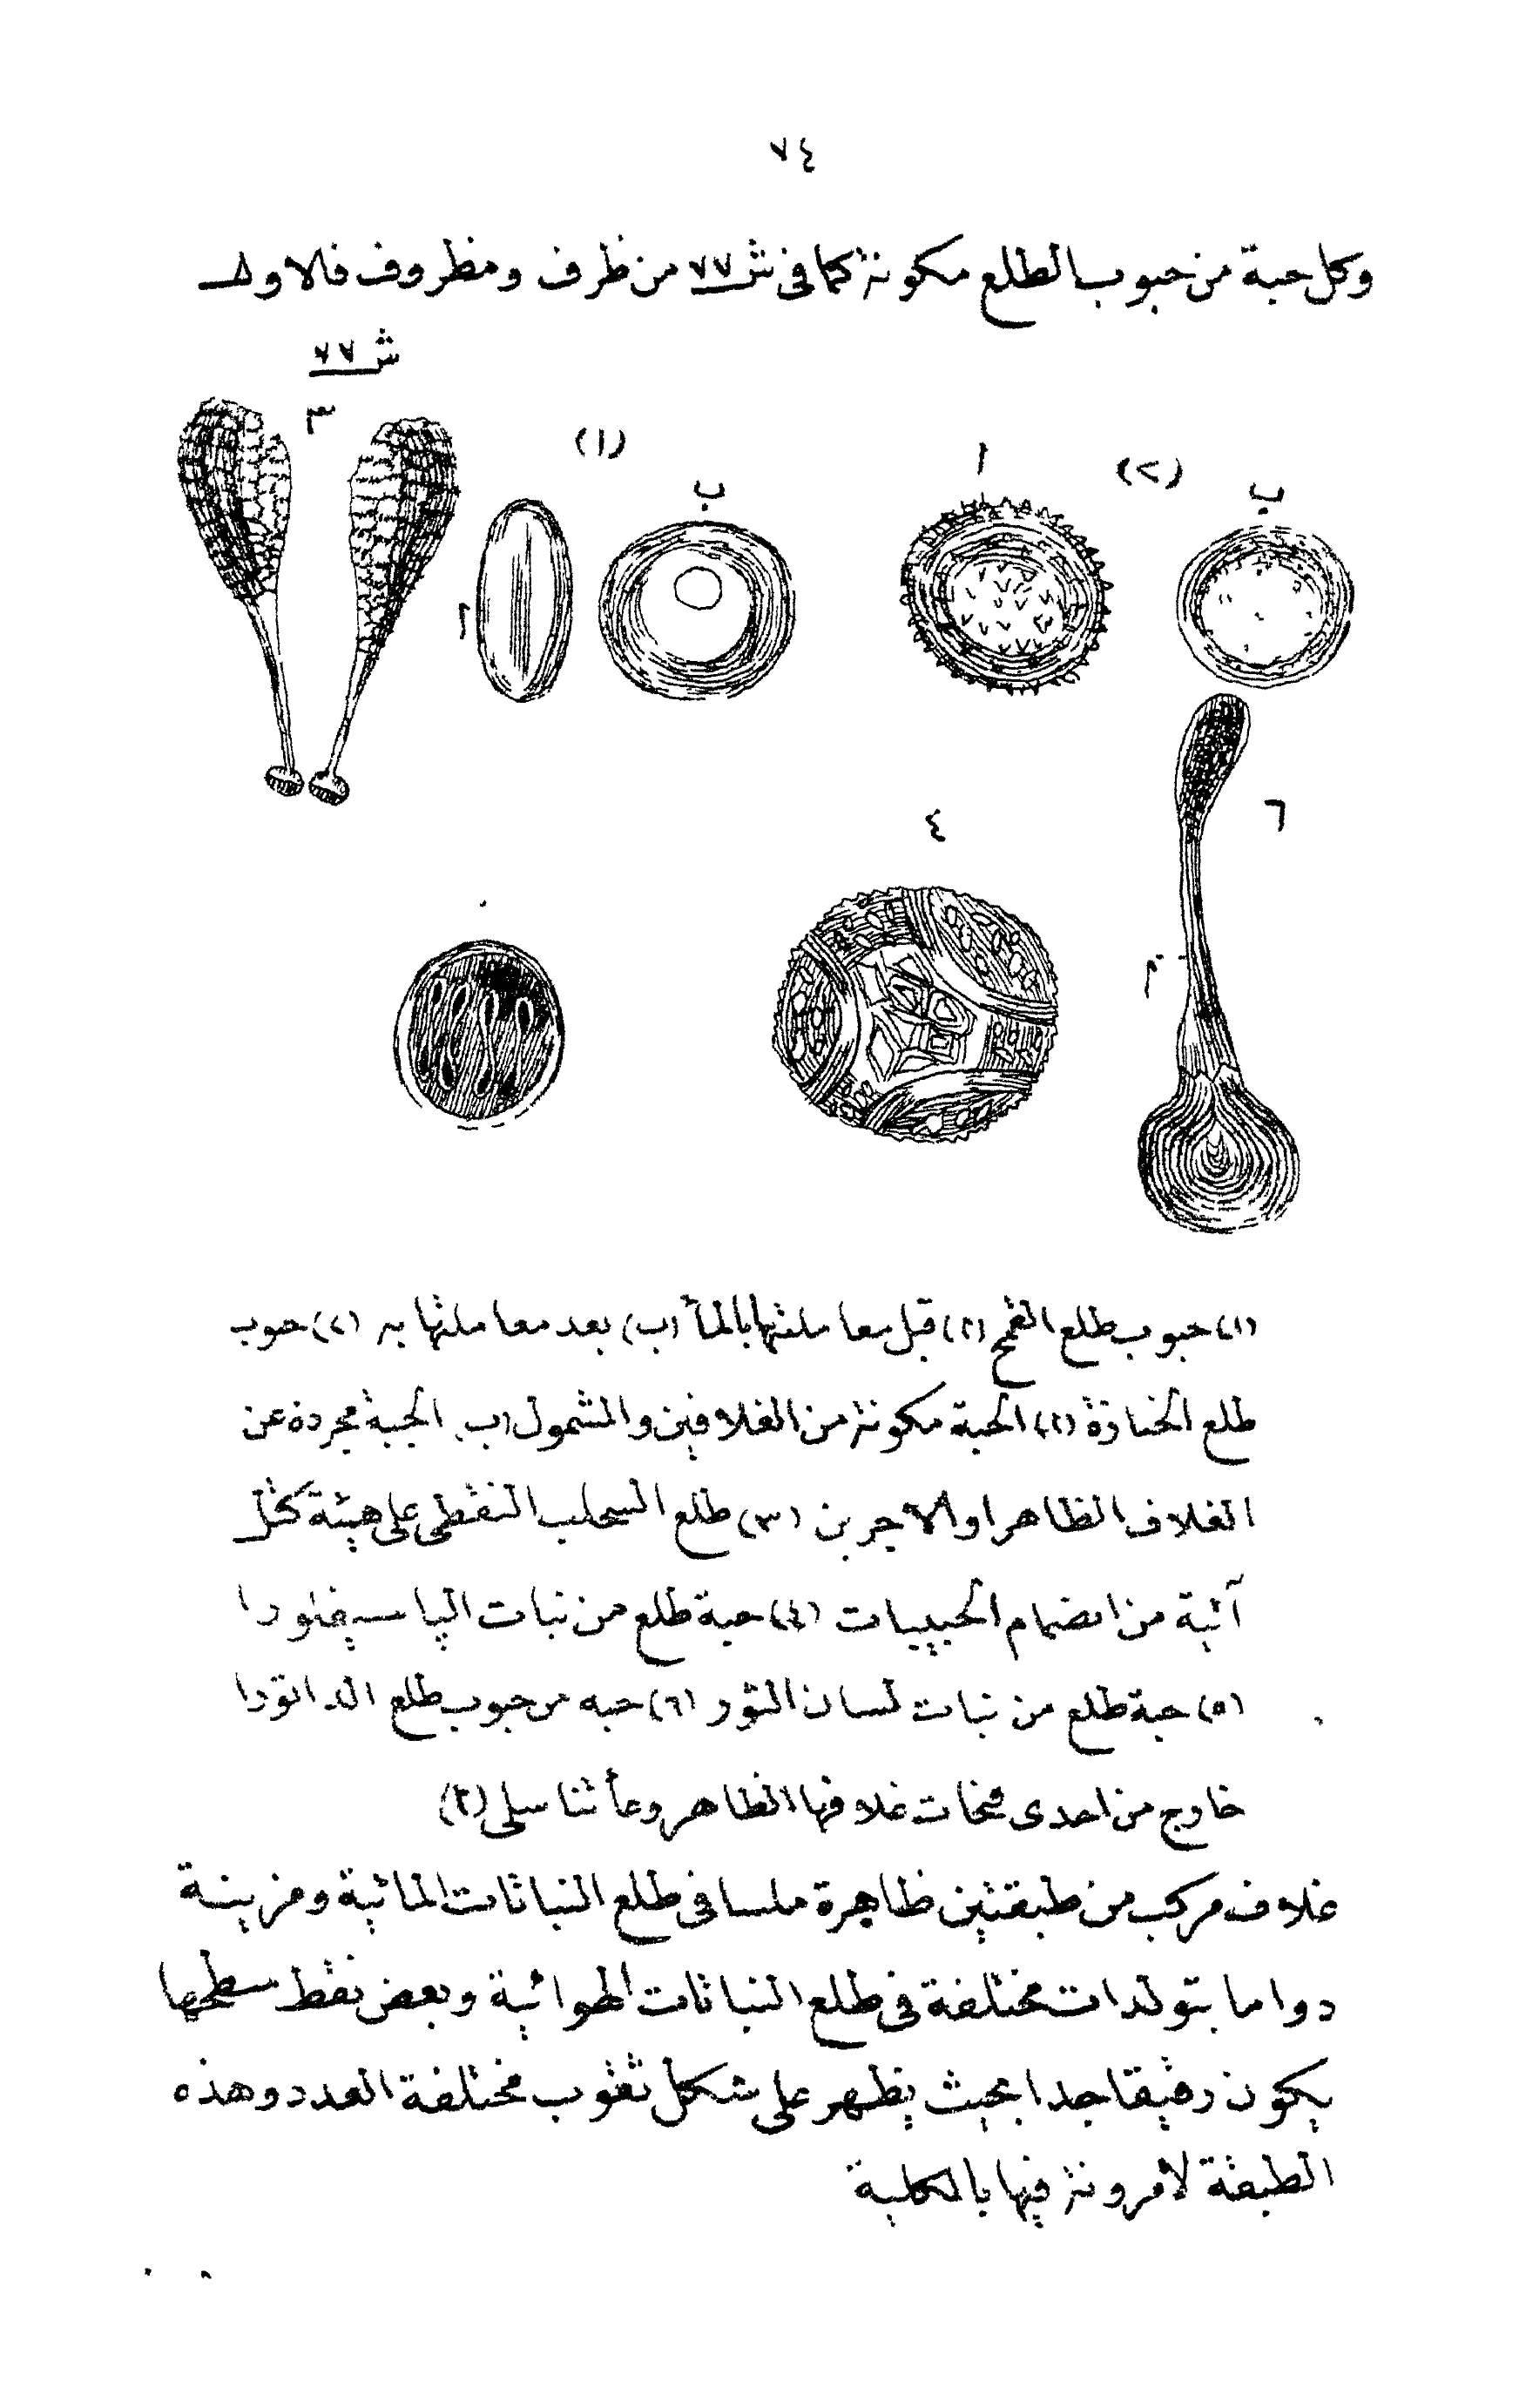 ٧٤
وكل حبة من حبوب الطلع مكونة كما فى ش ٧٧ من ظرف ومظروف فالاول
ش ٧٧
٣
(١)
ب
ا
(٢)
ب
ا
٤
٦
ا
(١) حبوب طلع القمح (ا) قبل معاملتها بالمأ (ب) بعد معاملتها به (٢) حبوب
طلع الخبازة (ا) الحبة مكونة من الغلافين والمشمول (ب) الحبة مجردة عن
الغلاف الظاهر او الاجربن (٣) طلع السحلب النقطى على هيئة كتل
آتية من انضمام الحبيبات (٤) حبة طلع من نبات الپاسيفلورا
(٥) حبة طلع من نبات لسان الثور (٦) حبه من حبوب طلع الداتورا
خارج من احدى فتحات غلافها الظاهر وعأ تناسلى (ا)
غلاف مركب من طبقتين ظاهرة ملسا فى طلع النباتات المائية ومزينة
دواما بتولدات مختلفة فى طلع النباتات الهوائية وبعض نقط سطحها
يكون رقيقا جدا بحيث يظهر على شكل ثقوب مختلفة العدد وهذه
الطبقة لامرونة فيها بالكلية